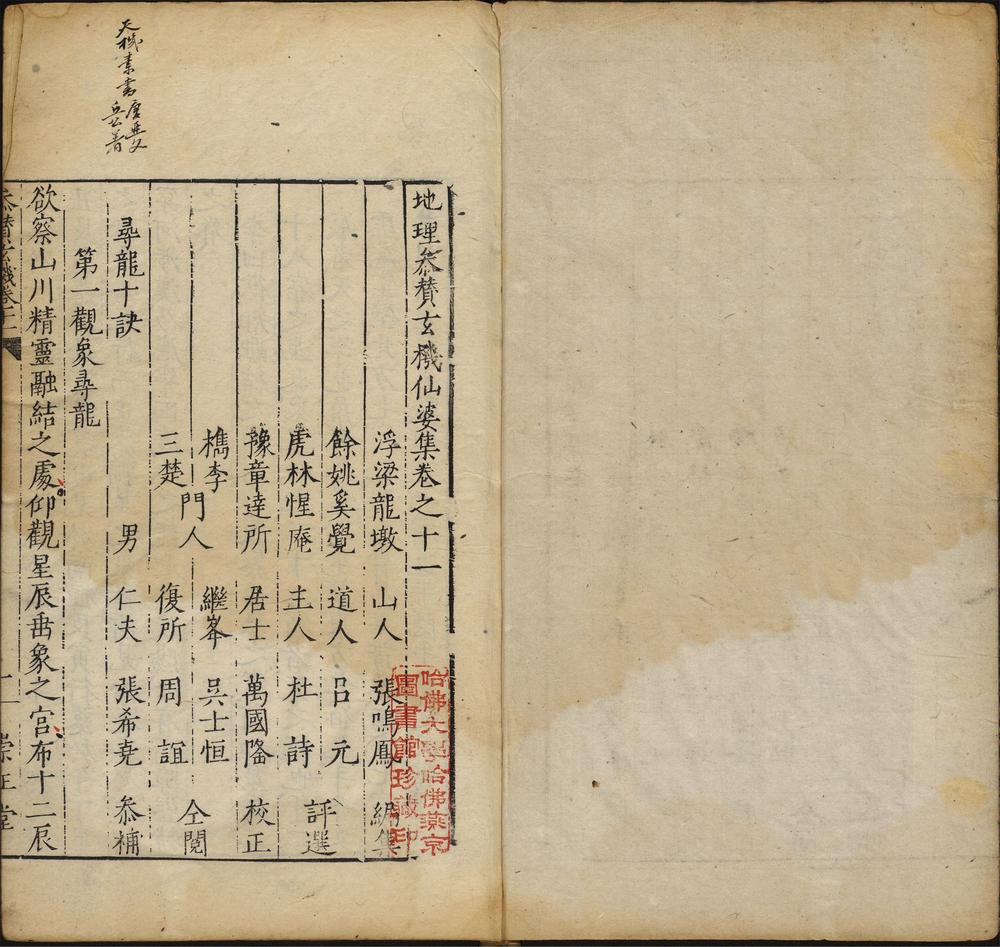 天機素書
地理叅賛玄機仙婆集卷之十一
浮梁龍墩 山人 張鳴鳳 編集
餘姚奚覺 道人 呂元
評選
虎林惺庵 主人 杜詩
豫章達所 居士 萬國隆 校正
檇李 繼峯 吳士恒
門人 仝閱
三楚 復所 周誼
男 仁夫 張希堯 叅補
尋龍十訣
第一觀象尋龍
欲察山川精靈融結之處仰觀星辰垂象之宫布十二辰
叅賛玄機卷十一 一 崇正堂
哈佛大學哈佛燕京
圖書館珍藏印